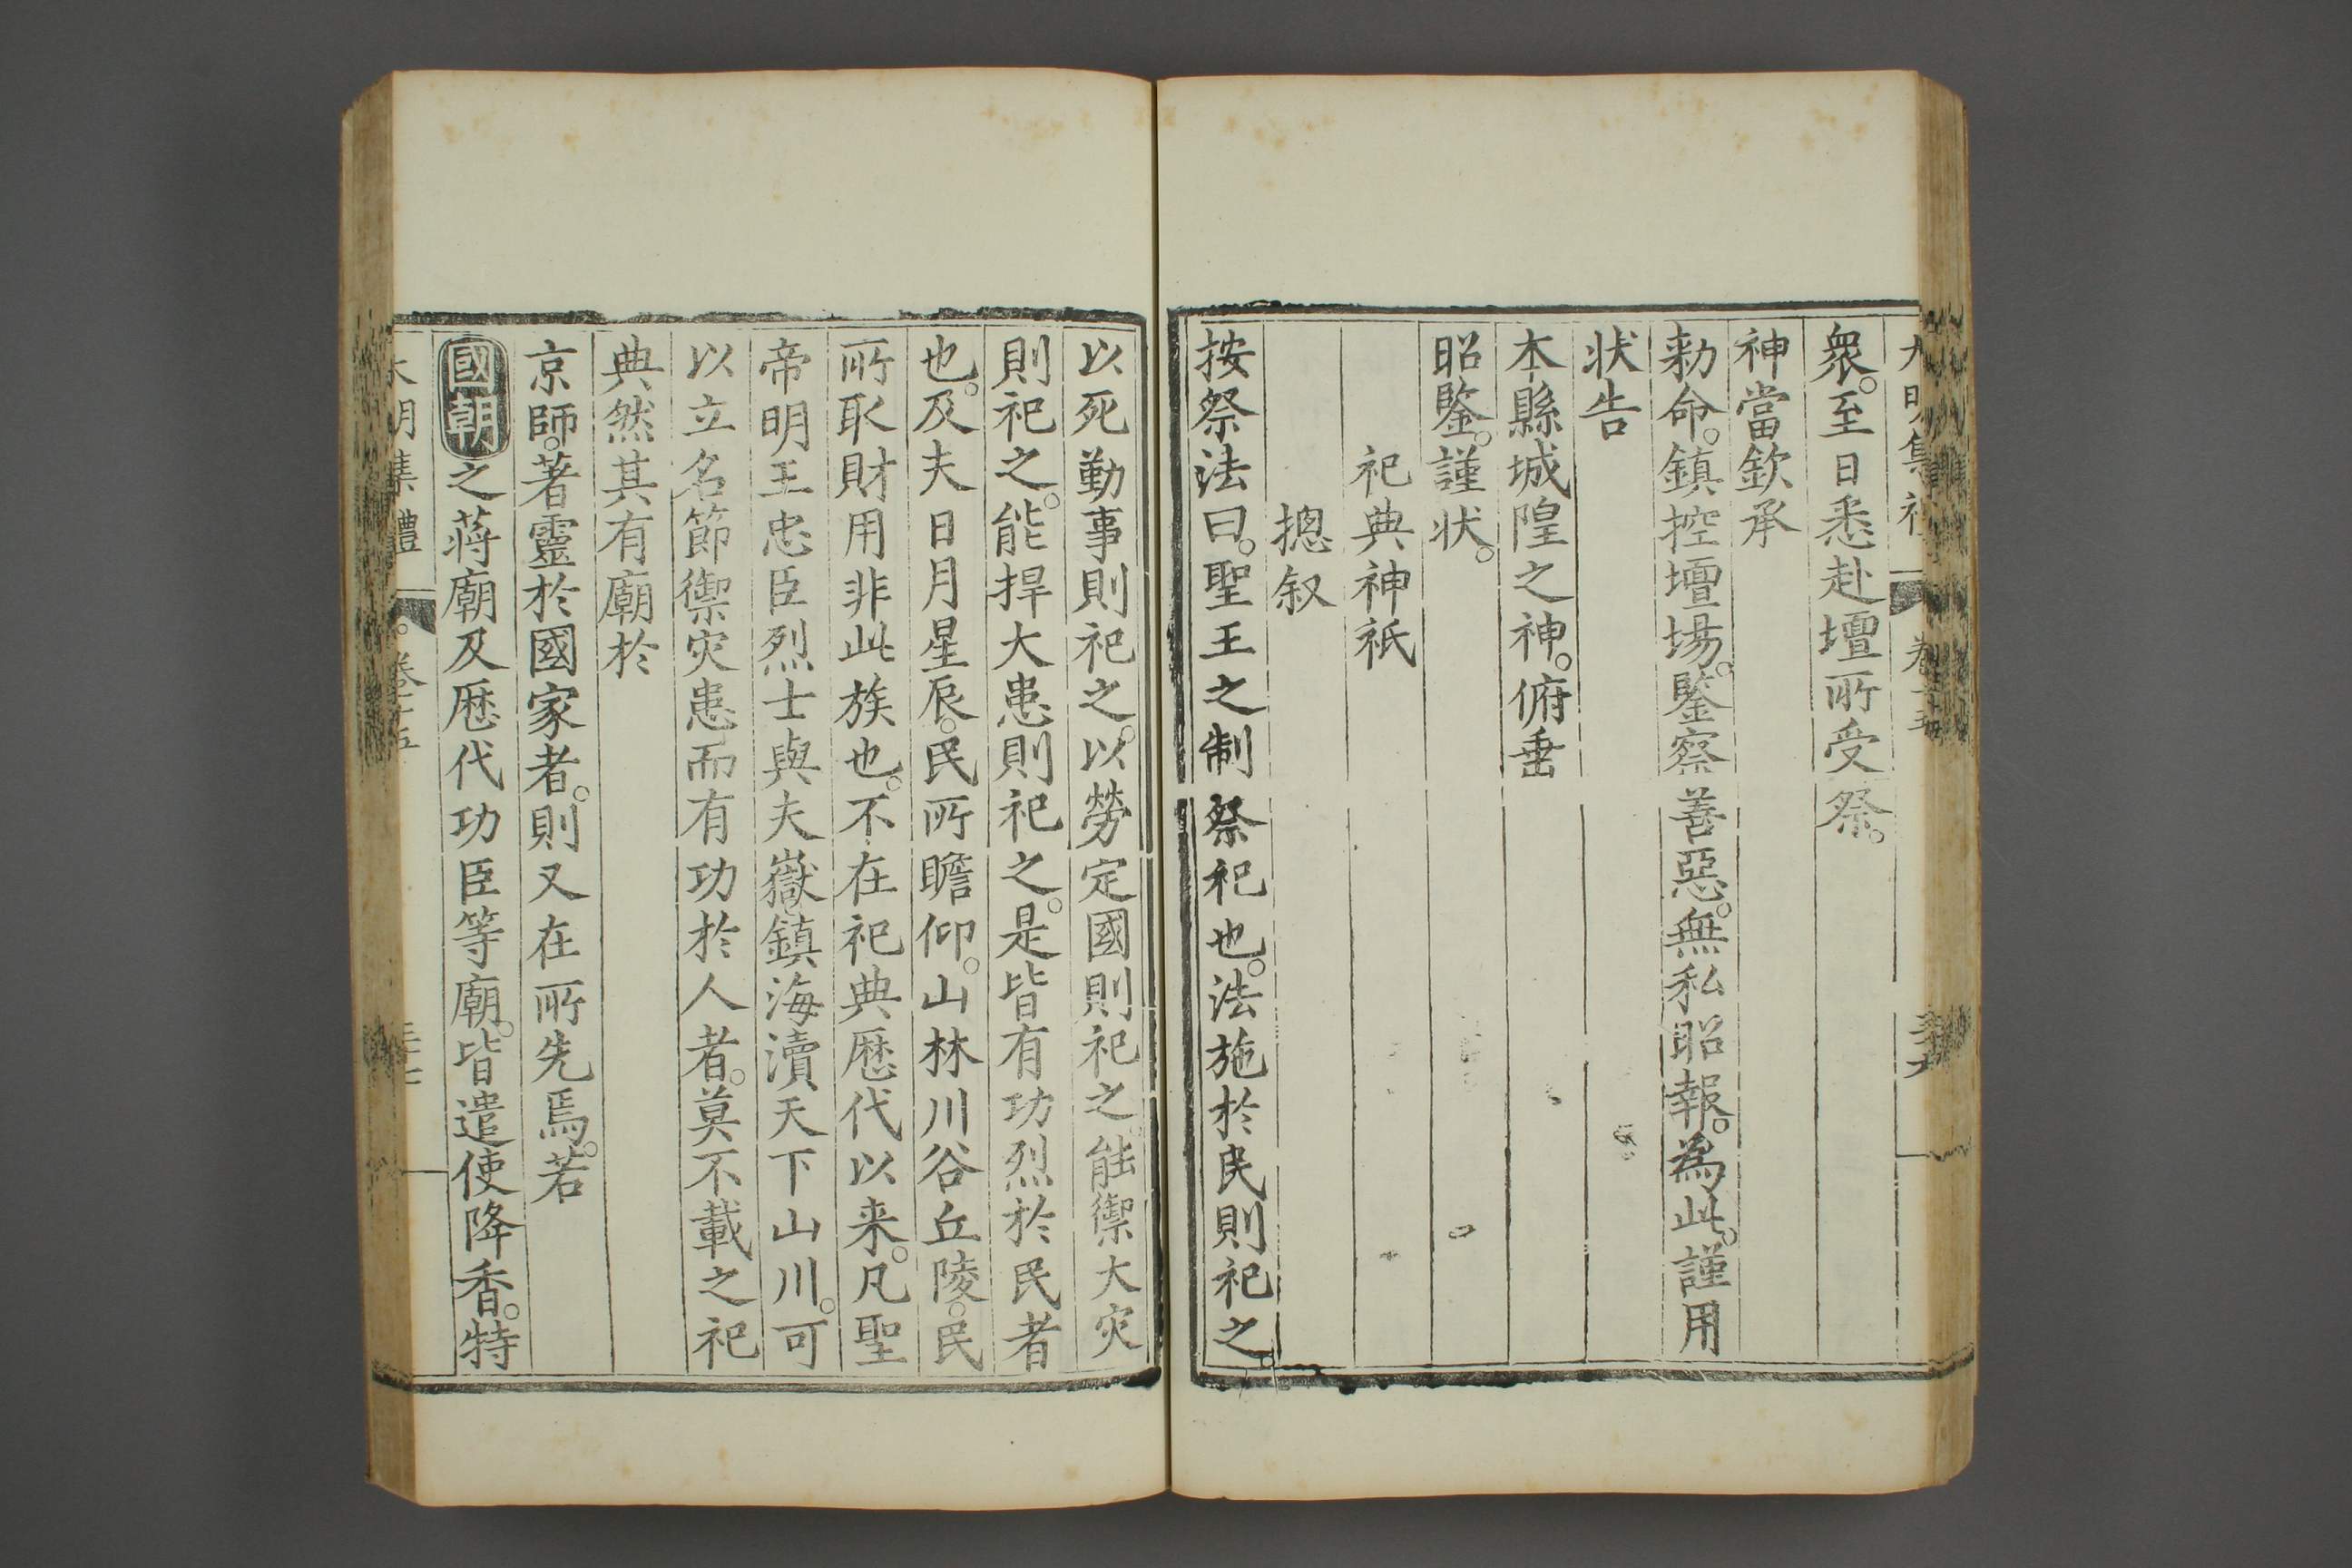 衆。至日悉赴壇所受祭。
神當欽承
勑命。鎮控壇場。鑒察善惡。無私昭報。為此。謹用
状告
本縣城隍之神。俯垂
昭鑒。謹状。
祀典神祇
摠叙
按祭法曰。聖王之制祭祀也。法施於民則祀之。
以死勤事則祀之。以勞定國則祀之能禦大灾
則祀之。能捍大患則祀之。是皆有功烈於民者
也。及夫日月星辰。民所瞻仰。山林川谷丘陵。民
所取財用非此族也。不在祀典歷代以来。凡聖
帝明王忠臣烈士與夫嶽鎮海瀆天下山川。可
以立名節禦灾患而有功於人者。莫不載之祀
典然其有廟於
京師。著靈於國家者。則又在所先焉。若
國朝之蒋廟及歷代功臣等廟。皆遣使降香。特
大明集禮 卷十五